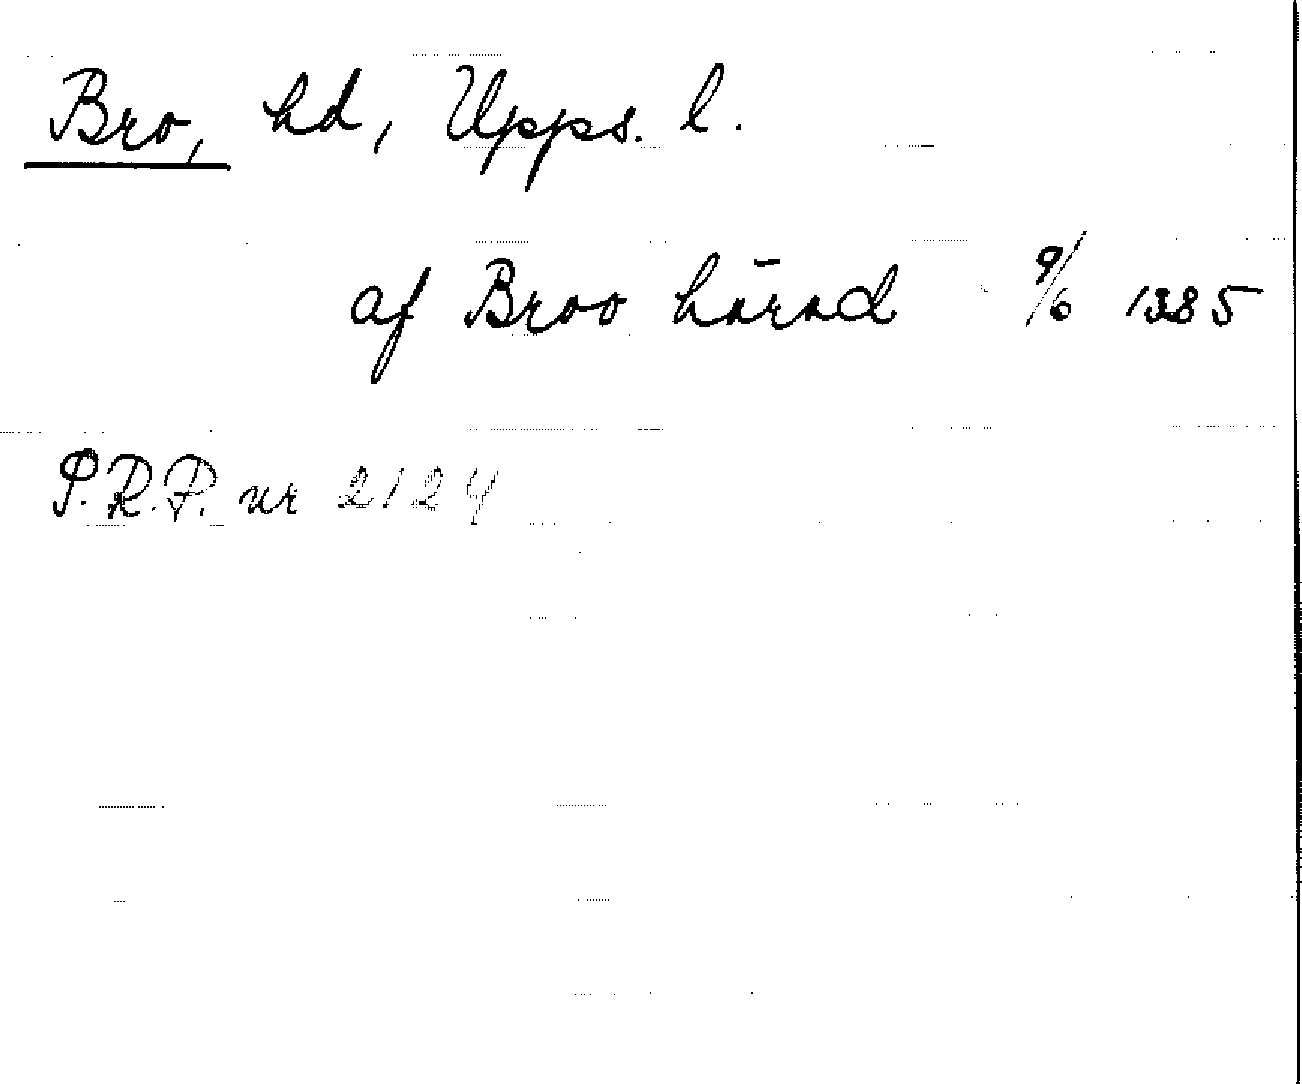 Bro, hd, Upps. l.
af Broo häræd 9/6 1385
P.R.P. nr 2124